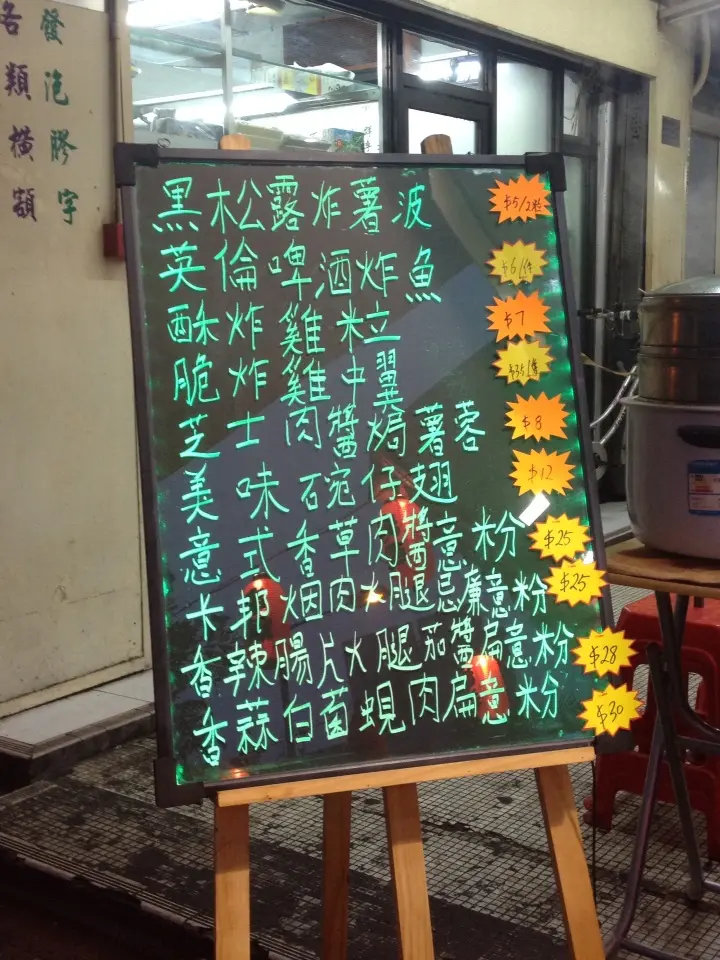 發泡膠字
各類橫額
黑松露炸薯波 $5/2粒
英倫啤酒炸魚 $6/件
酥炸雞米粒 $7
脆炸雞中翼 $35/隻
芝士肉醬焗薯蓉 $8
美味碗仔翅 $12
意式香草肉醬意粉 $25
卡邦烟肉火腿忌廉意粉 $25
香辣腸片火腿茄醬扁意粉 $28
香蒜白菌蜆肉扁意粉 $30